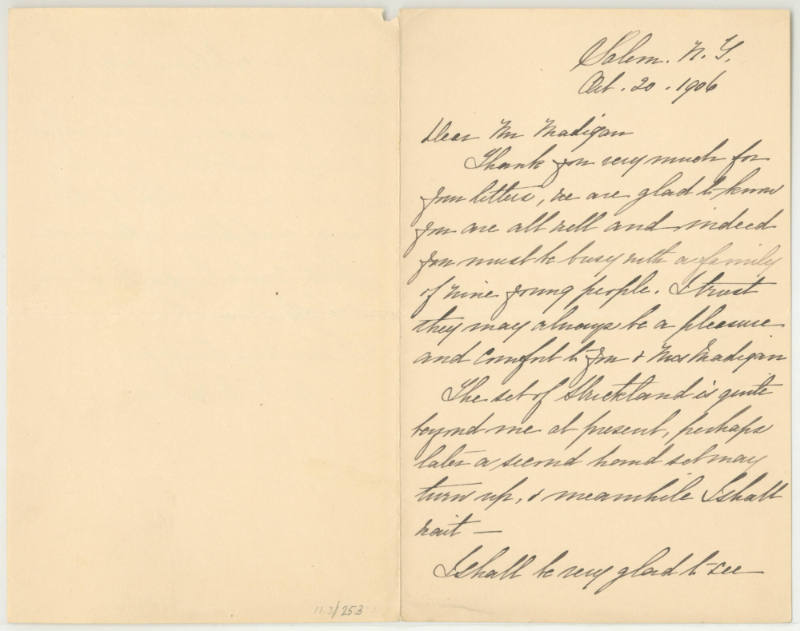 Salem. N. Y.
Oct. 20. 1906
Dear Mr Madigan
Thank you very much for
your letters, we are glad to know
you are all well and indeed
you must be busy with a family
of nine young people. I trust
they may always be a pleasure
and comfort to you & Mrs Madigan
The set of Strickland is quite
beyond me at present, perhaps
later a second hand set may
turn up, & meanwhile I shall
wait —
I shall be very glad to see
11.2/253